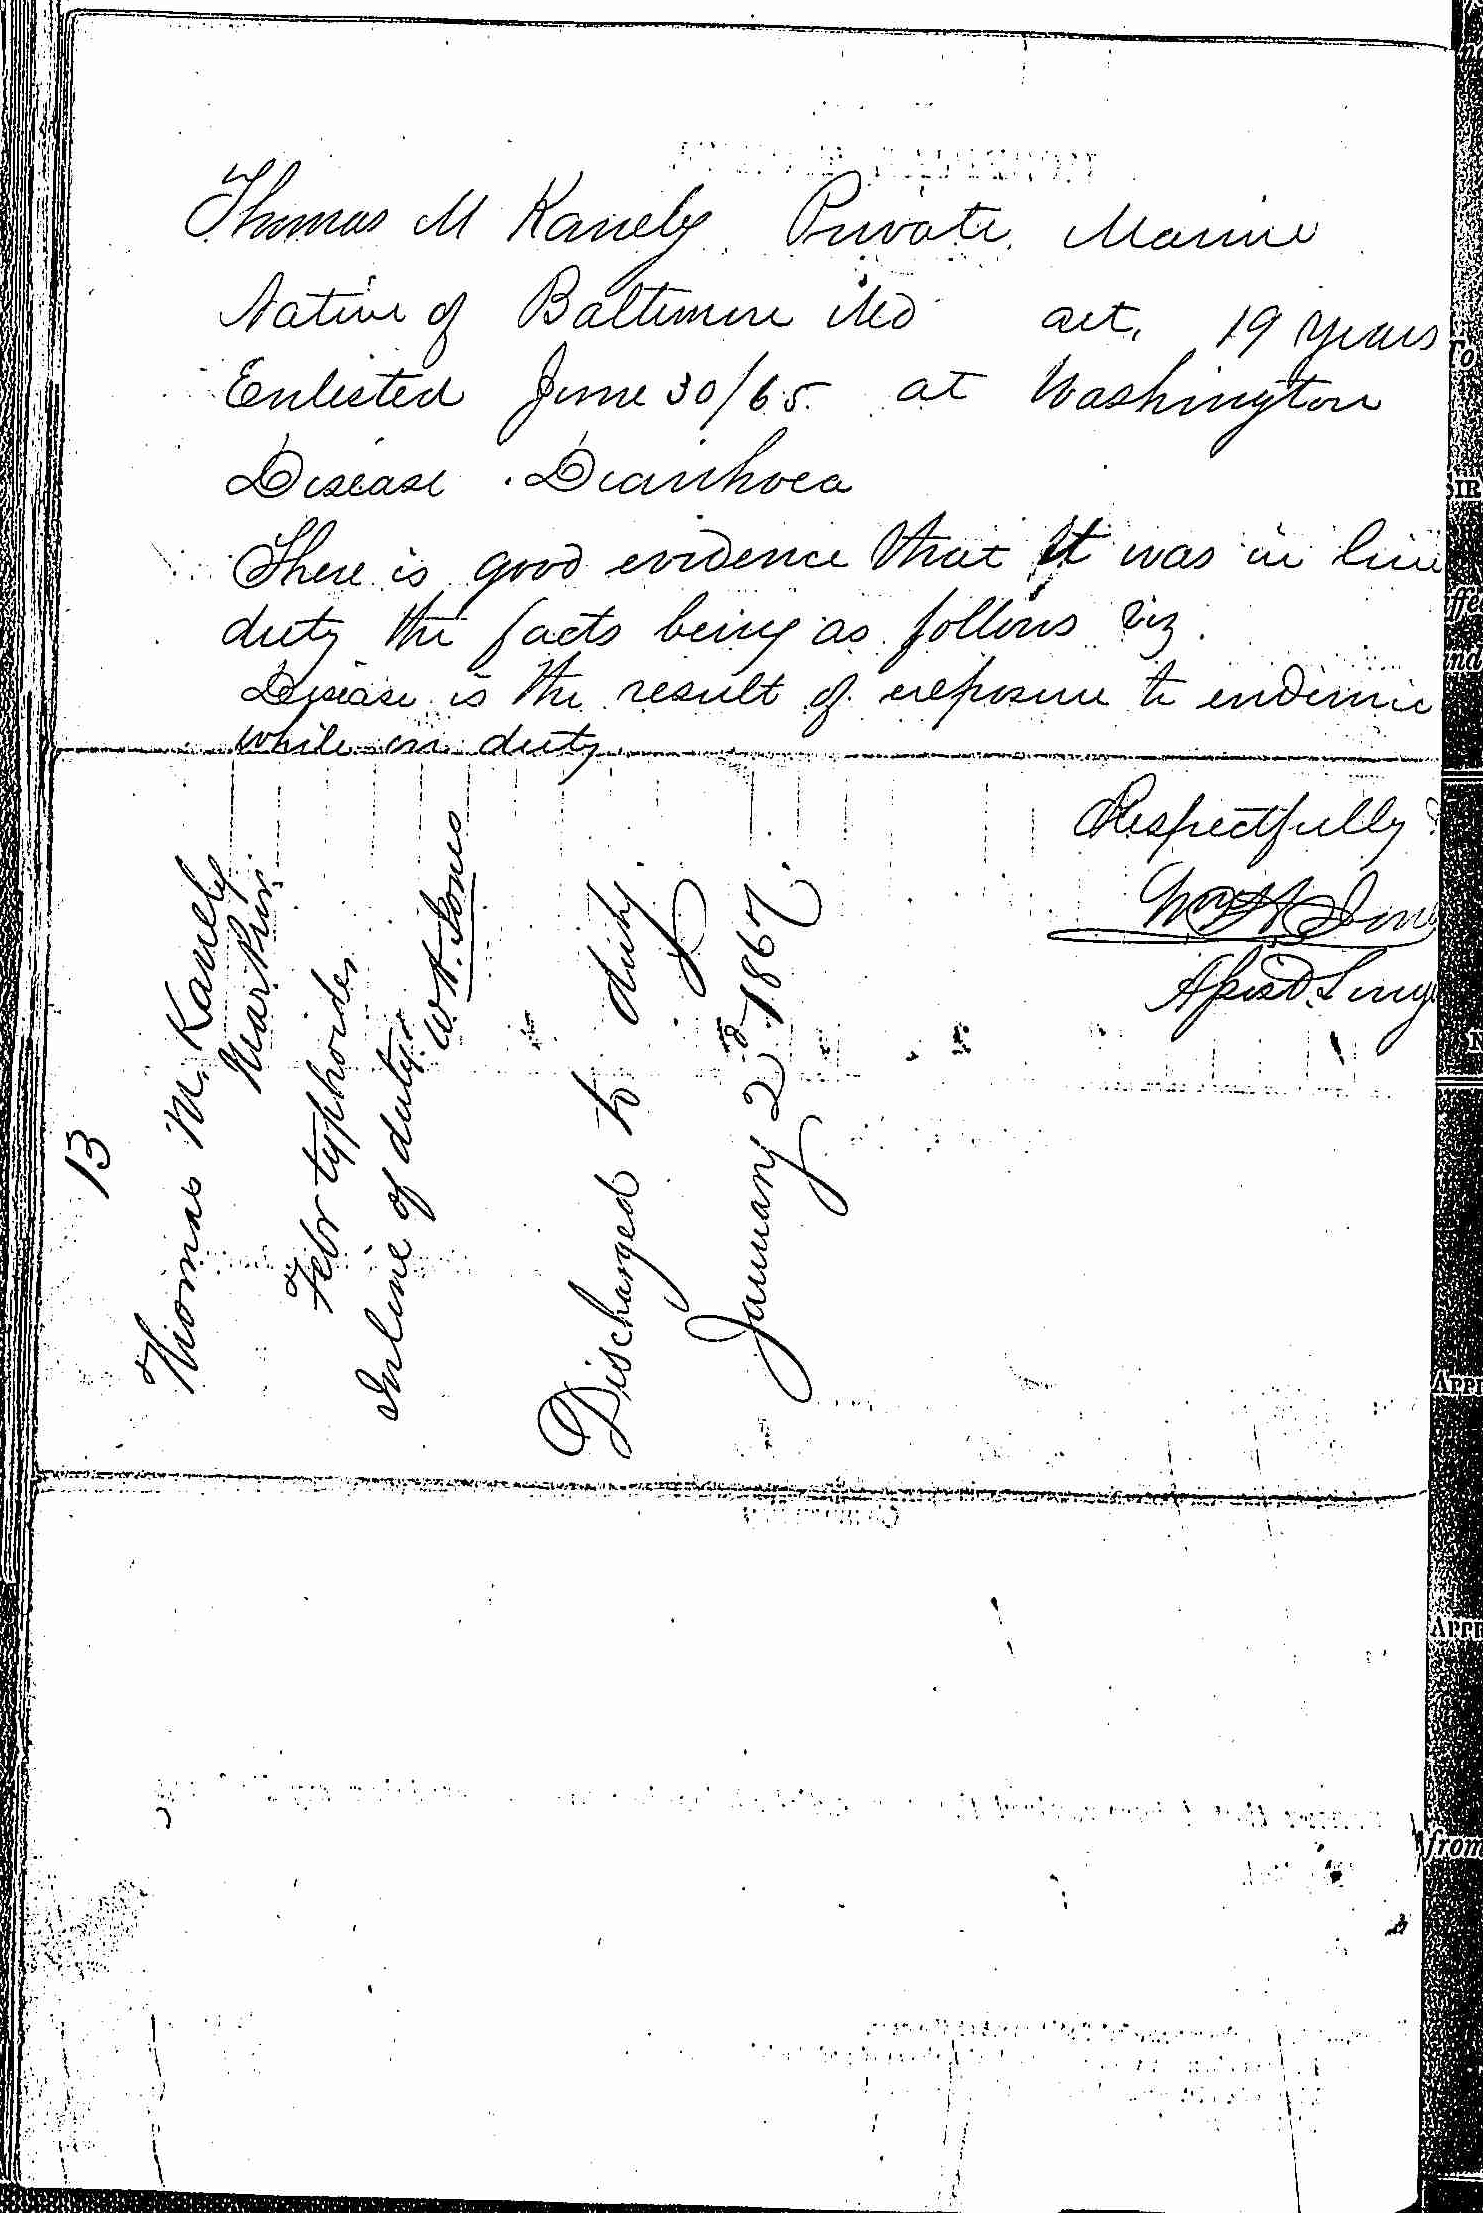 Thomas M Kanely Private Marine
Native of Baltimore Md aet. 19 years
Enlisted June 30/65. at Washington
Disease. Diarrhoea
There is good evidence that it was in line
duty the facts being as follows viz.
Disease is the result of exposure to endemic
while on duty
Respectfully
Wm H Jones
13
Thomas M. Kanely
Febr typhoides
In line of duty
W. H. Jones
Discharged to duty
January 2d 1867.
To
SIR
N
APPR
APPR
from